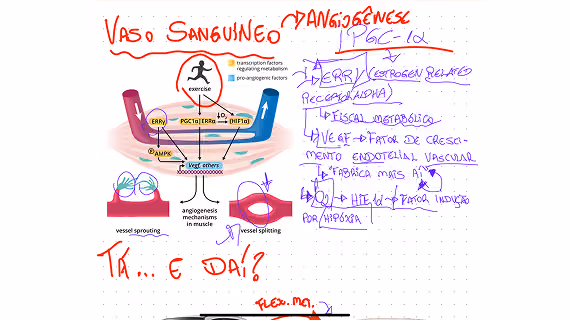 VASO SANGUÍNEO → ANGIOGÊNESE
PGC-1α
transcription factors
regulating metabolism
pro-angiogenic factors
exercise
ERRγ
PGC1α
ERRα
↓O₂
HIF1α
P AMPK
Vegf, others
vessel sprouting
angiogenesis
mechanisms
in muscle
vessel splitting
ERRγ (ESTROGEN RELATED
RECEPTOR ALPHA)
FISCAL METABÓLICO
VEGF → FATOR DE CRESCI-
MENTO ENDOTELIAL VASCULAR
"FABRICA MAIS
O₂ → HIF-1α → FATOR INDUÇÃO
POR HIPÓXIA
TÁ... E DAÍ?
FLEX. MET.